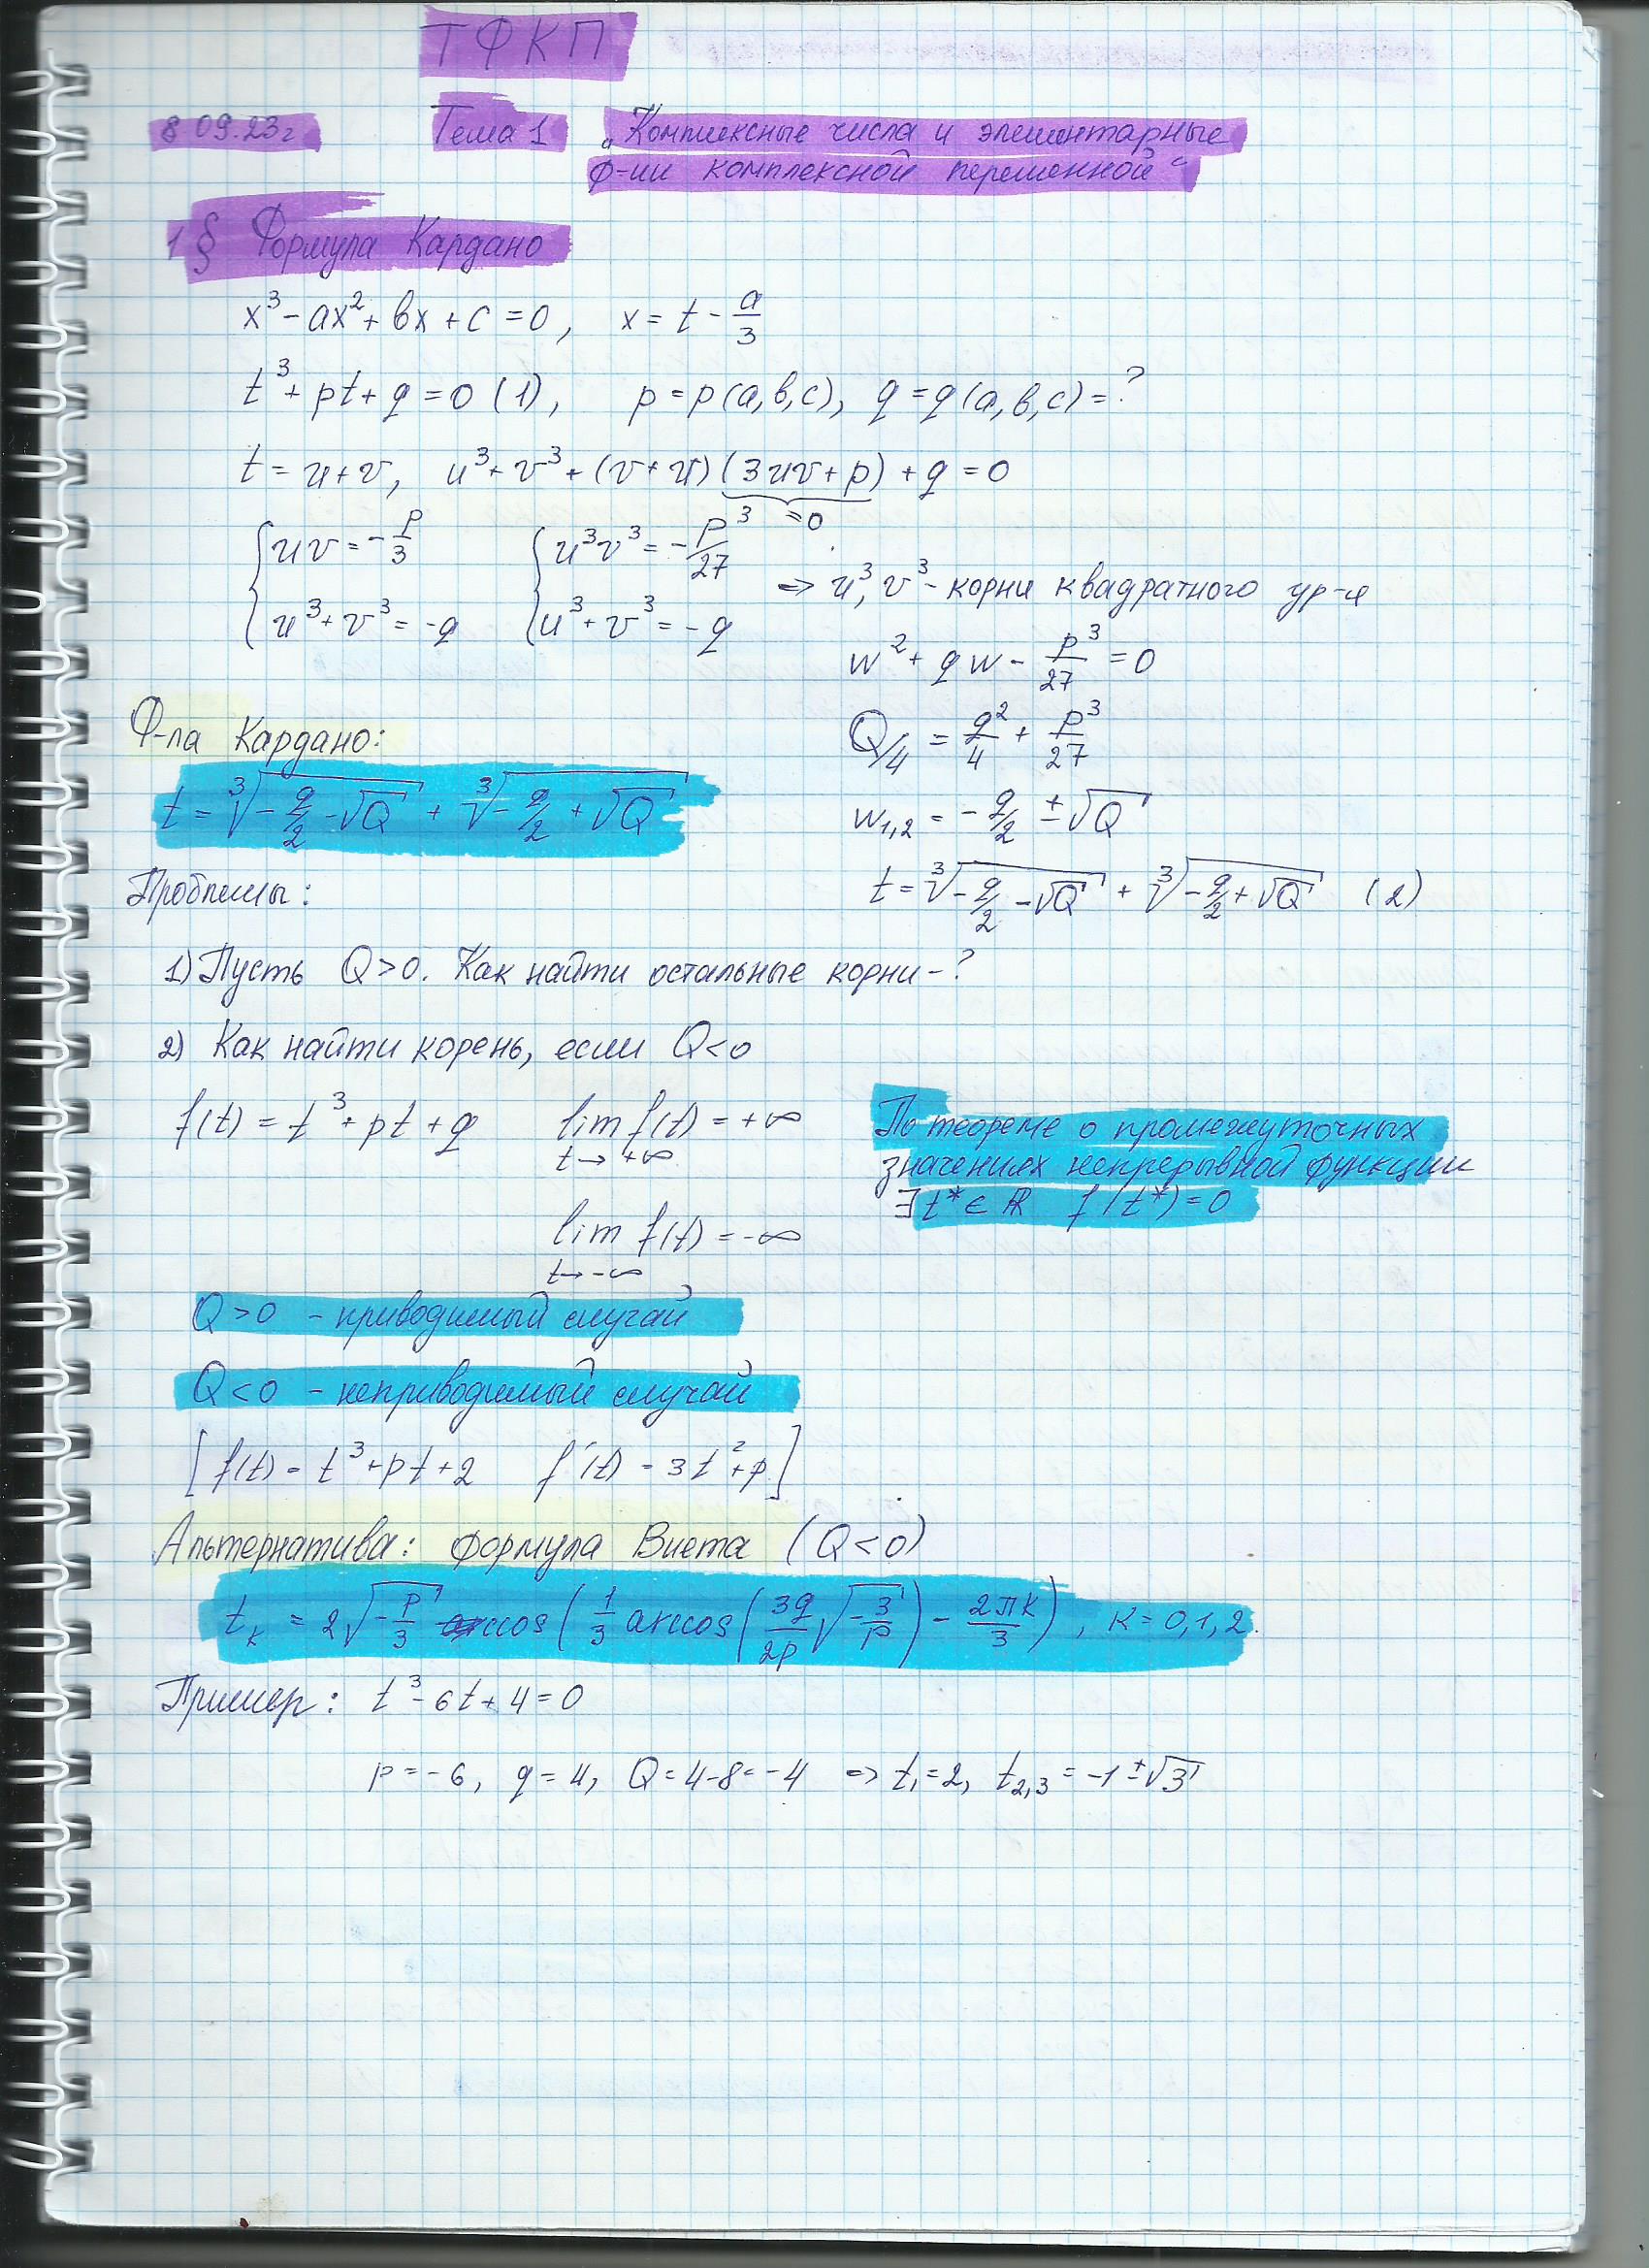 ТФКП
8 09.23г Тема 1 „Комплексные числа и элементарные
ф-ии комплексной переменной“
1 § Формула Кардано
x³ - ax² + bx + c = 0, x = t - a/3
t³ + pt + q = 0 (1), p = p(a,b,c), q = q(a,b,c) = ?
t = u + v, u³ + v³ + (v + u)(3uv + p) + q = 0
=0
{ uv = -p/3 { u³v³ = -p³/27
⇒ u³, v³ - корни квадратного ур-я
u³ + v³ = -q u³ + v³ = -q
w² + qw - p³/27 = 0
Ф-ла Кардано:
Q/4 = q²/4 + p³/27
t = ∛(-q/2 - √Q) + ∛(-q/2 + √Q)
w1,2 = -q/2 ± √Q
Проблемы:
t = ∛(-q/2 - √Q) + ∛(-q/2 + √Q) (2)
1) Пусть Q>0. Как найти остальные корни-?
2) Как найти корень, если Q<0
f(t) = t³ + pt + q lim f(t) = +∞
t→+∞
По теореме о промежуточных
значениях непрерывной функции
∃ t* ∈ ℝ f(t*) = 0
lim f(t) = -∞
t→-∞
Q>0 - приводимый случай
Q<0 - неприводимый случай
[f(t) = t³ + pt + 2 f'(t) = 3t² + p]
Альтернатива: формула Виета (Q<0)
t_k = 2√(-p/3) cos(1/3 arccos(3q/2p √(-3/p)) - 2πk/3), k = 0,1,2.
Пример: t³ - 6t + 4 = 0
p = -6, q = 4, Q = 4-8 = -4 ⇒ t₁ = 2, t2,3 = -1 ± √3